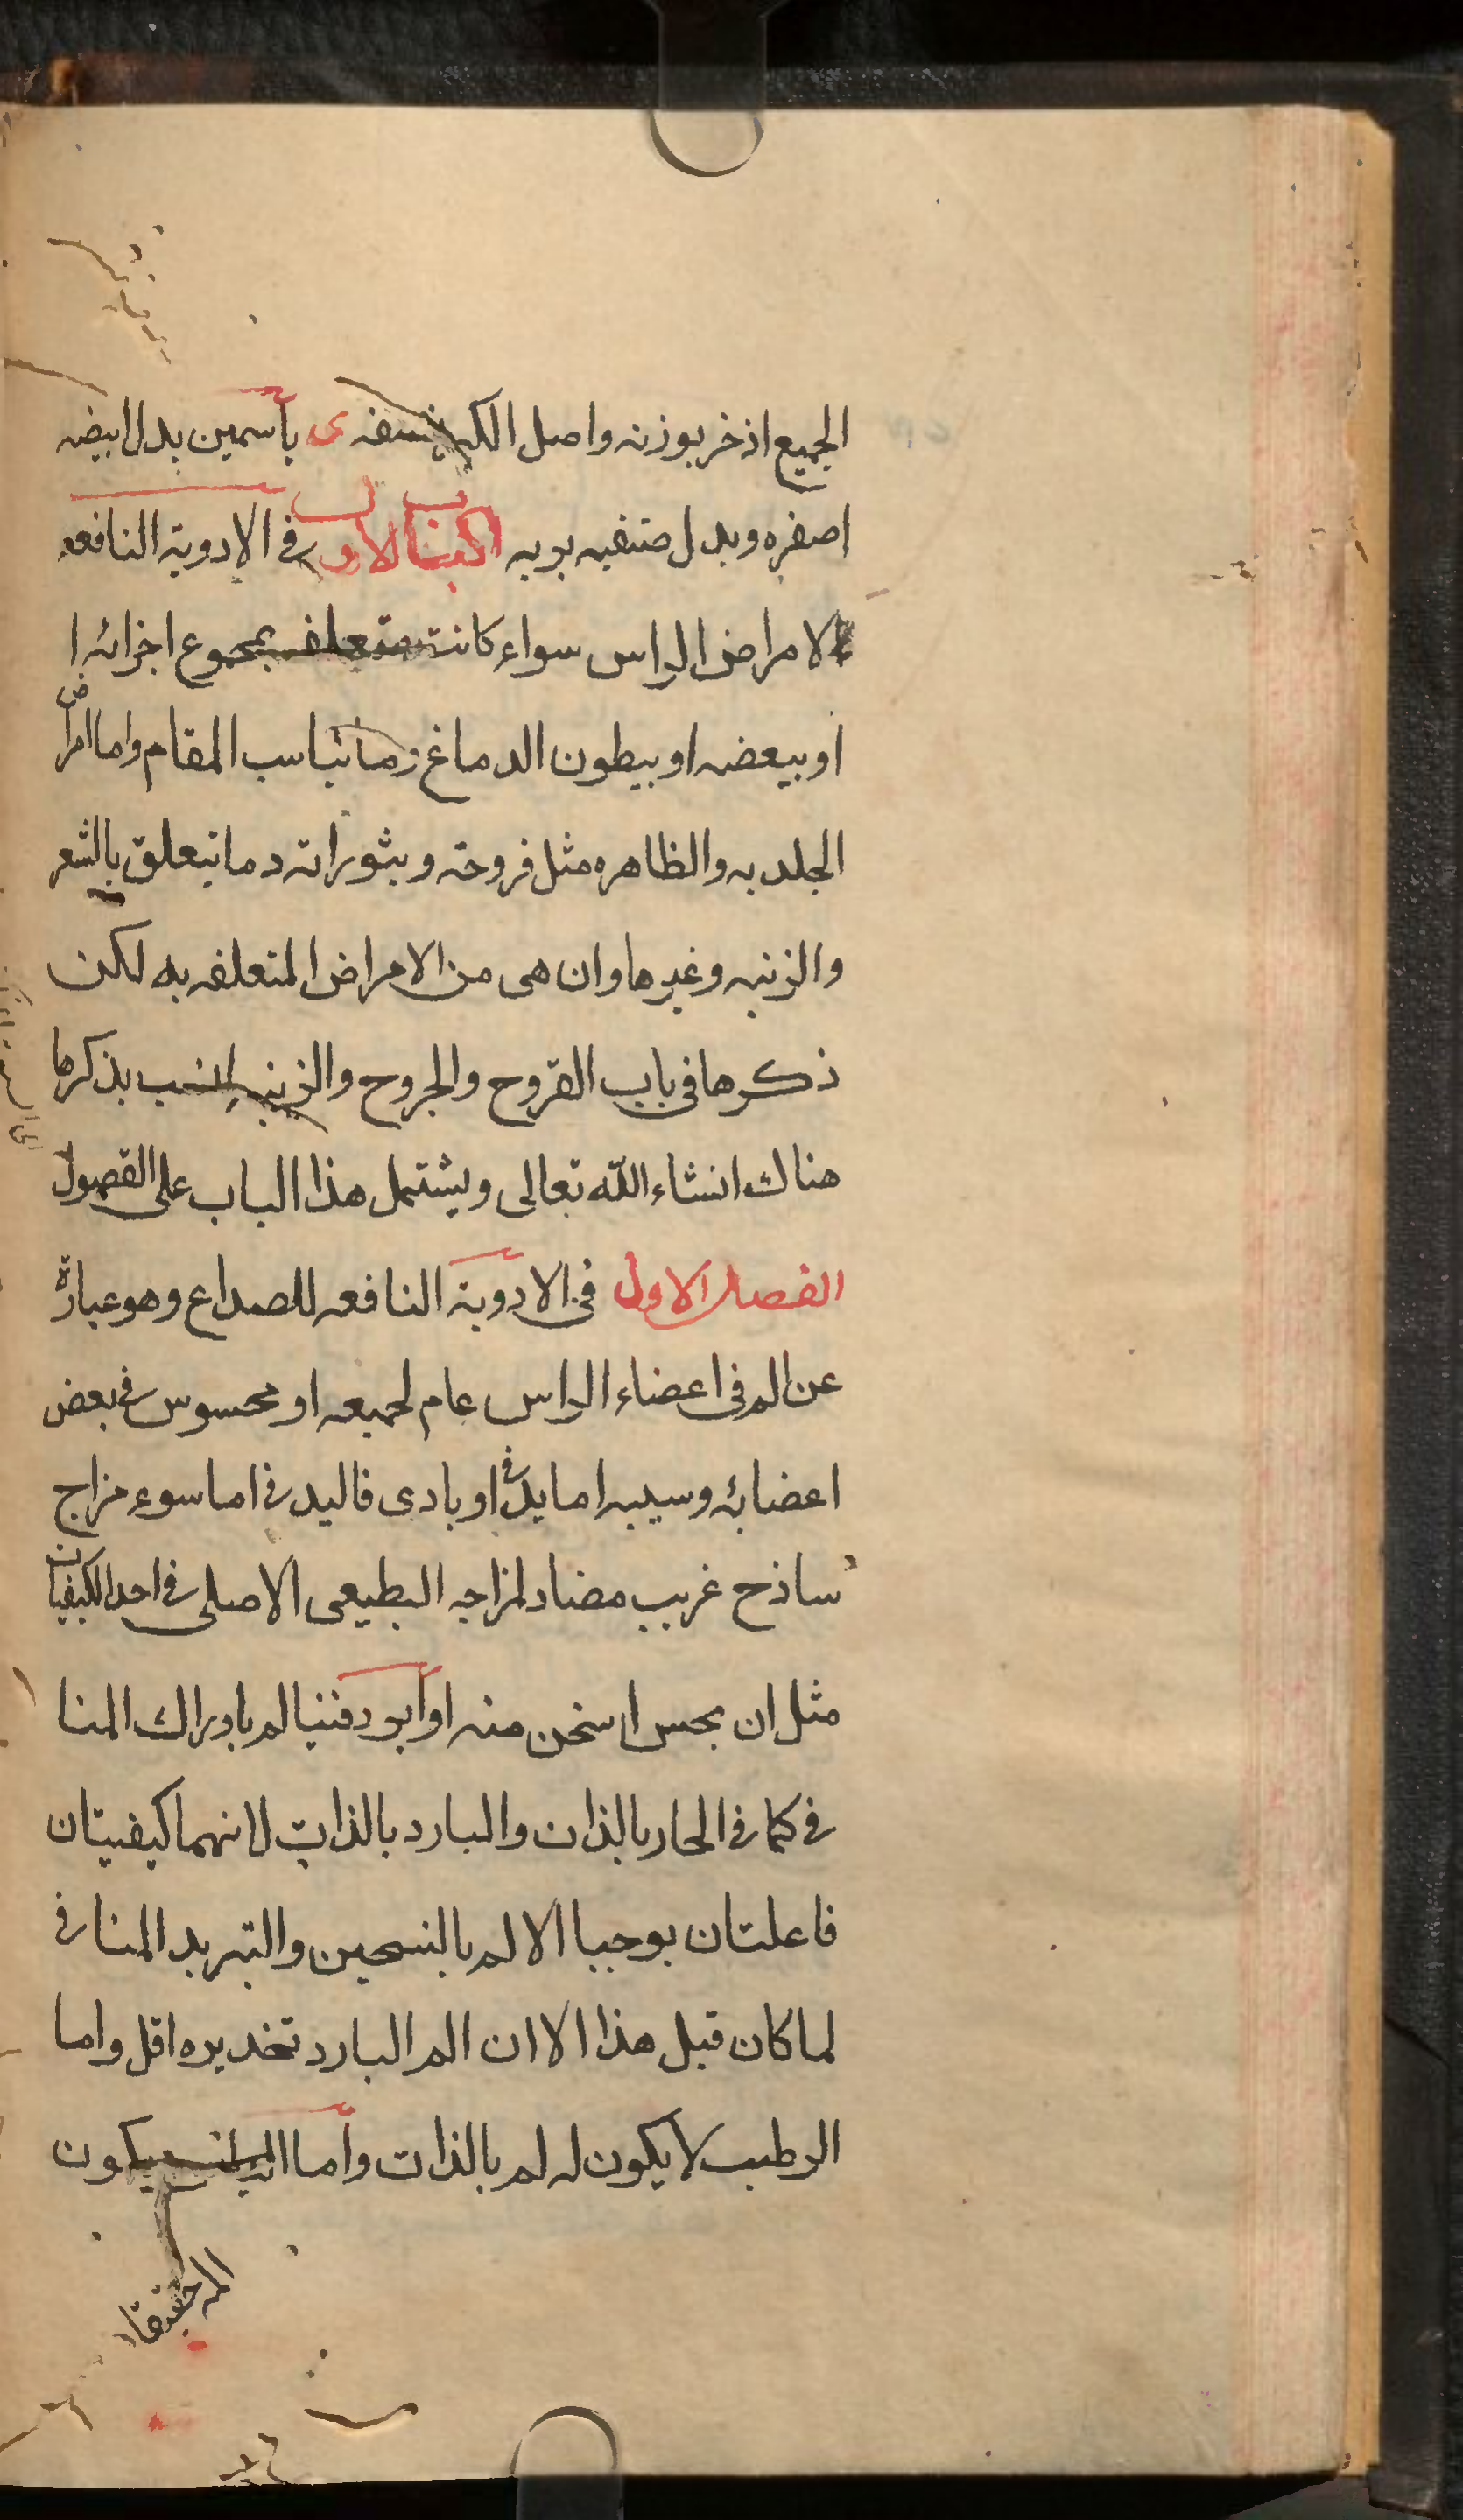 الجميع اذخر بوزنه واصل الكبر نسفه ى ياسمين بدل ابيضه
اصفره وبدل صنفيه بريه الباب الاول في الادوية النافعه
لامراض الراس سواء كانت متعلقه بمجموع اجزائه ا
او ببعضه او ببطون الدماغ وما يناسب المقام واما امراض
الجلدیه والظاهره مثل قروحه وبثوراته وما يتعلق بالشعر
والزينه وغيرها وان هي من الامراض المتعلقه به لكن
ذكرها في باب القروح والجروح والزينه انسب بذكرها
هناك انشاء الله تعالى ويشتمل هذا الباب على الفصول
الفصل الاول في الادوية النافعه للصداع وهو عبارة
عن الم في اعضاء الراس عام لجميعه او محسوس في بعض
اعضائه وسببه اما بدني او بادى فالبدني اما سوء مزاج
ساذج غريب مضاد لمزاجه الطبيعي الاصلي في احد الكيفيات
مثل ان يحس اسخن منه او ابرد فيتالم بادراك المنا
في كما في الحار بالذات والبارد بالذات لانهما كيفيتان
فاعلتان يوجبا الالم بالتسخين والتبريد المنافي
لما كان قبل هذا الا ان الم البارد تخديره اقل واما
الرطب لا يكون له الم بالذات واما اليابس يكون
المه خفيفا